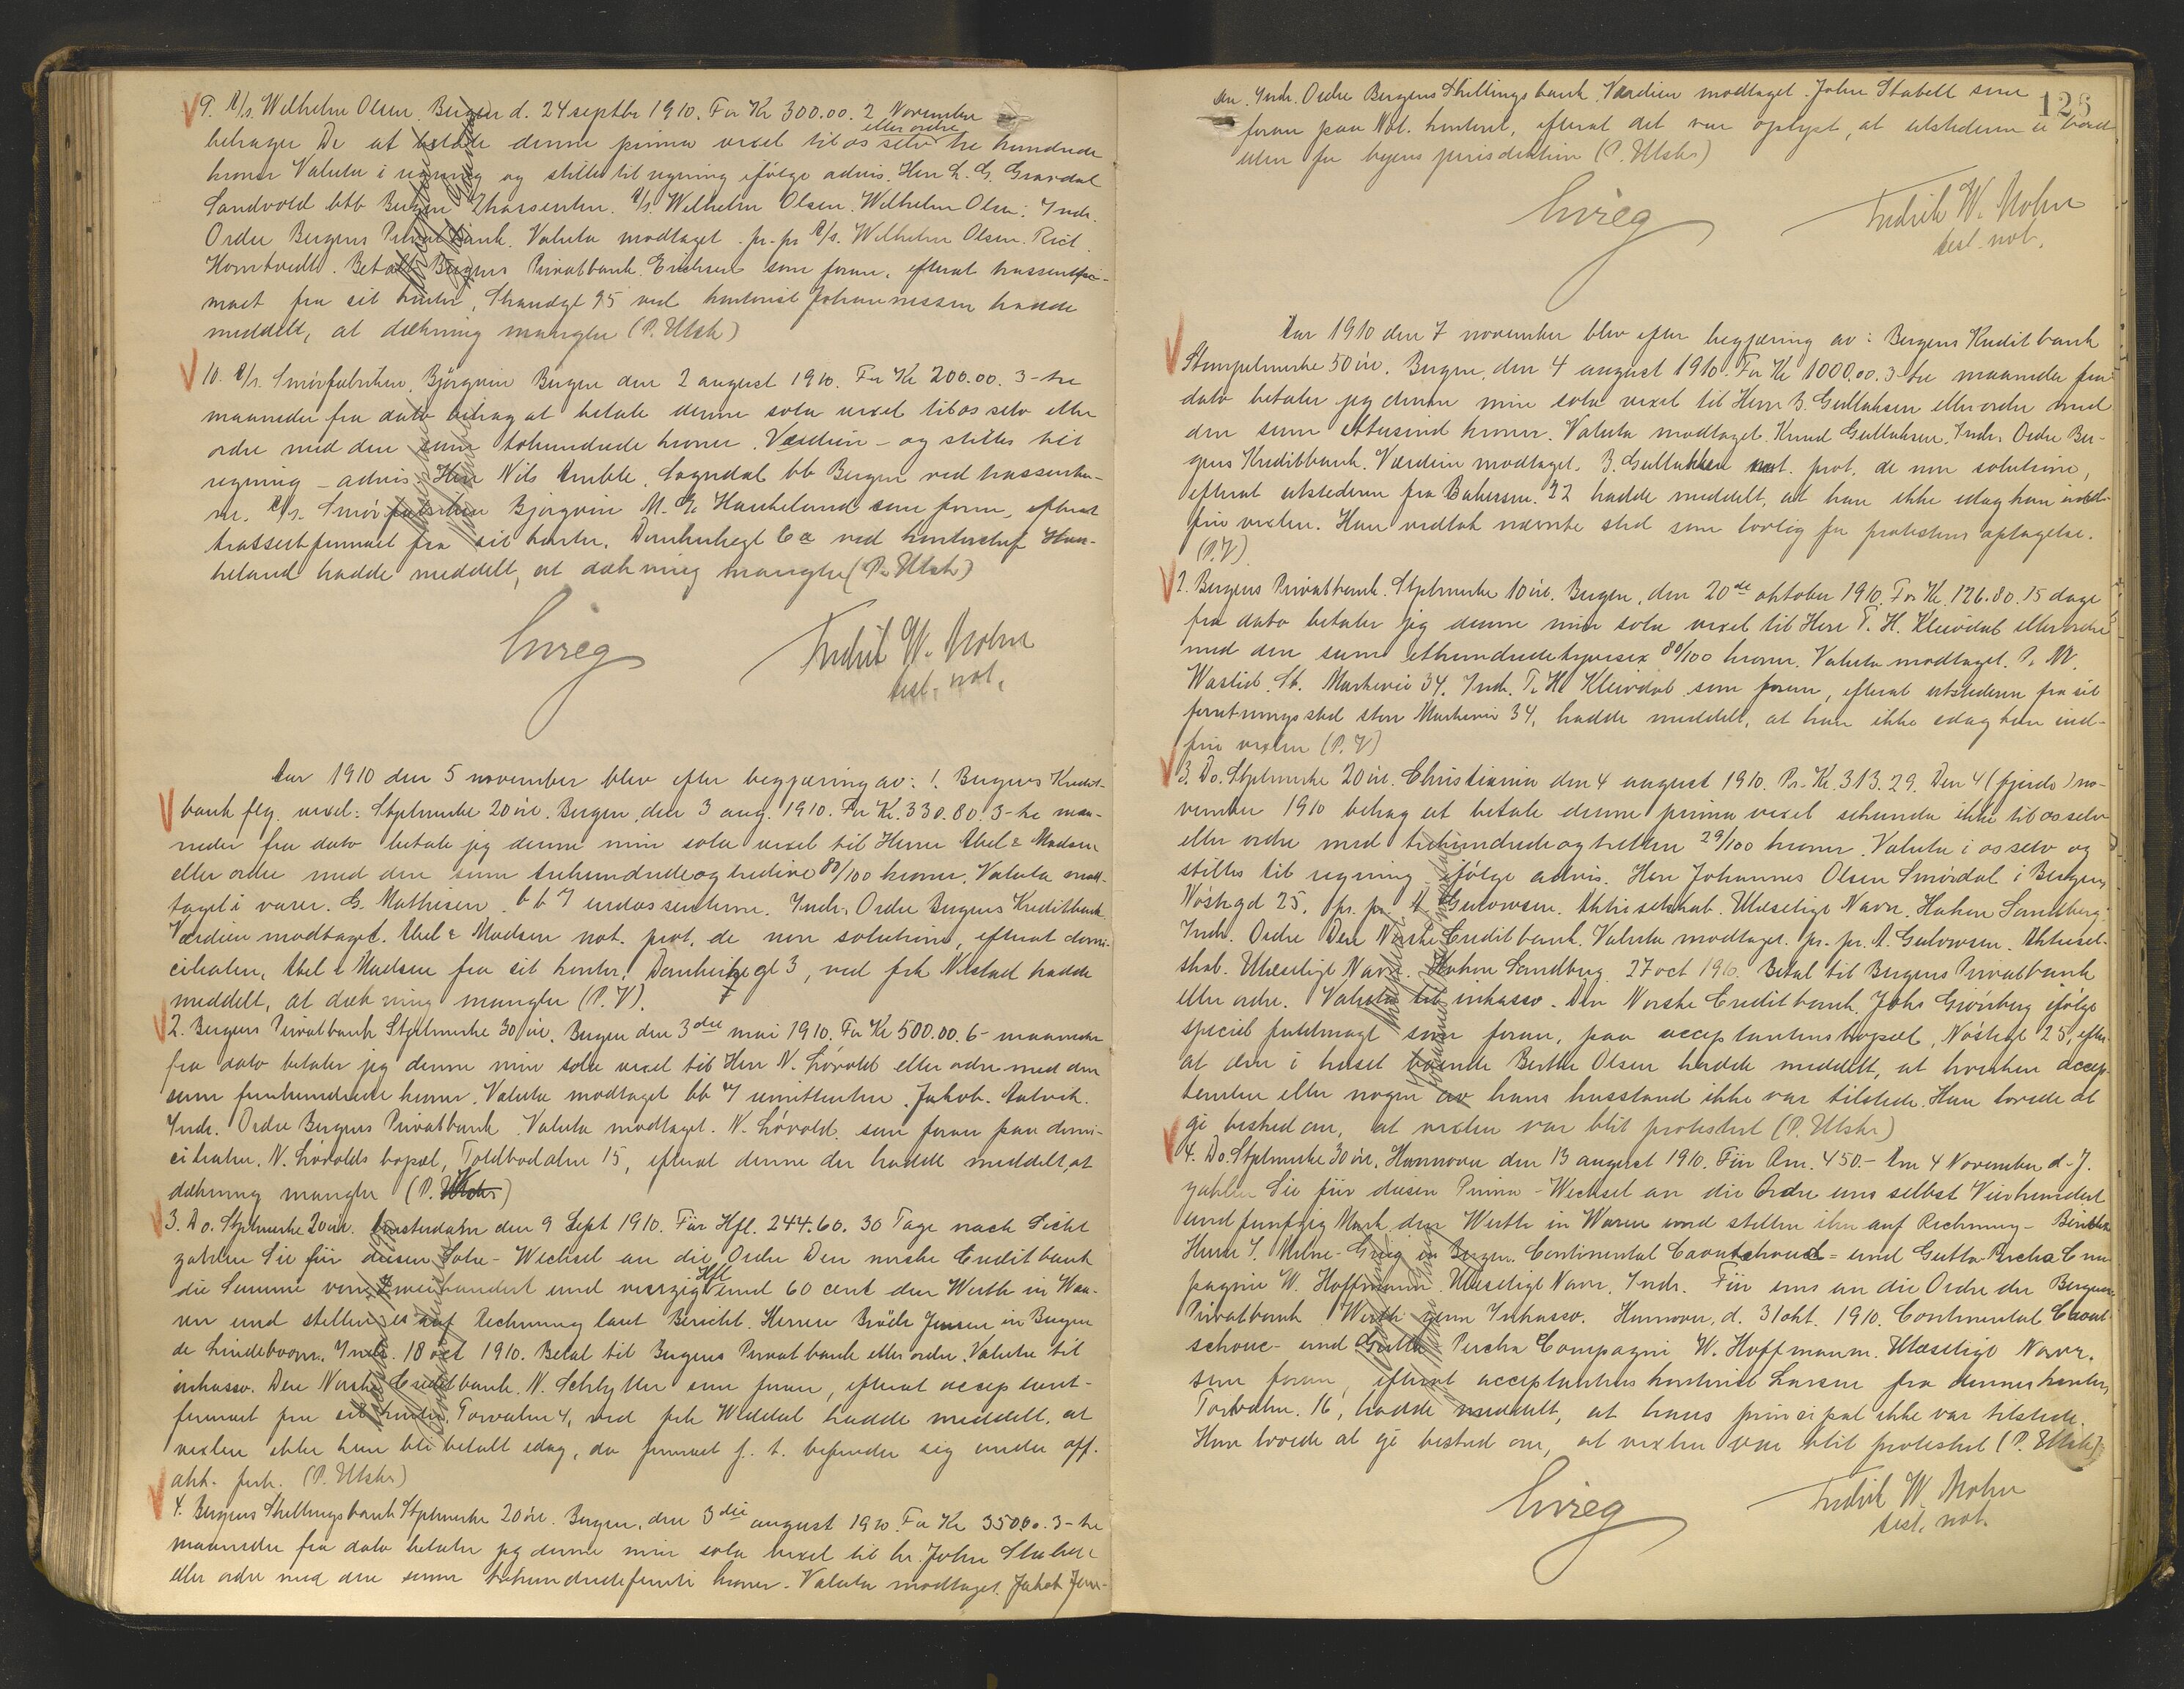 9. A/s. Wilhelm Olsen. Bergen d. 24 septbr 1910. For Kr 300.00. 2 November
behager De at betale denne prima vexel til os selv eller ordre tre hundrede
kroner Valuta i regning og stilles til regning ifølge advis. Herr L. G. Gravdal
Sandvold btb Bergen Trassenten. A/s. Wilhelm Olsen. Wilhelm Olsen. Indr.
Ordre Bergens Privatbank. Valuta modtaget. pr. pr A/s. Wilhelm Olsen. Rich
Betalt Bergens Privatbank. Erichsen som foran, efterat trassentfir-
maet fra sit kontor, Strandgt 95 ved kontorist Johannessen hadde
meddelt, at dækning mangler (P. Utskr)
10. A/s. Smørfabriken Bjørgvin Bergen den 2 august 1910. For Kr 200.00. 3 - tre
maaneder fra dato behag at betale denne sola vexel til os selv eller
ordre med den sum tohundrede kroner. Værdien - og stilles til
regning - advis. Herr Nils Amble, Sogndal bb Bergen ved trassenten-
ne. A/s. Smørfabriken Bjørgvin M. G. Haukeland som foran, efterat
trassentfirmaet fra sit kontor, Domkirkegt 6a ved kontorchef Hau-
keland hadde meddelt, at dækning mangler (P. Utskr)
Fredrik W. Mohn
dest. not.
Aar 1910 den 5 november blev efter begjæring av: 1. Bergens Kredit-
bank flg. vexel: Stplmerke 20 øre. Bergen, den 3 aug. 1910. For Kr. 330.80. 3 - tre maa-
neder fra dato betaler jeg denne min sola vexel til Herrer Abel & Madsen
eller ordre med den sum trehundredeogtredive 80/100 kroner. Valuta mod-
taget i varer. G. Mathisen. bb / endossenterne. Indr. Ordre Bergens Kreditbank.
Værdien modtaget. Abel & Madsen not. prot. de non solutione, efterat domi-
ciliaten, Abel & Madsen fra sit kontor, Domkirkegt 3, ved frk Nilstad hadde
meddelt, at dækning mangler (P. V).
2. Bergens Privatbank Stplmerke 30 øre. Bergen den 3die mai 1910. For Kr 500.00. 6 - maaneder
fra dato betaler jeg denne min sola vexel til Herr N. Løvold eller ordre med den
sum femhundrede kroner. Valuta modtaget bb / remittenten. Jakob Aalvik.
Indr. Ordre Bergens Privatbank. Valuta modtaget. N. Løvold. som foran paa domi-
ciliaten, N. Løvolds bopæl, Toldbodalm 15, efterat denne der hadde meddelt, at
dækning mangler (P. Utskr)
3. Do. Stplmerke 20 øre. Amsterdam den 9 Sept 1910. Für Hfl. 244.60. 30 Tage nach Sicht
zahlen Sie für diesen Sola - Wechsel an die Ordre Den norske Creditbank
die Summe von Zweihundert und vierzig Hfl und 60 cent den Werth in Waa-
ren und stellen es auf Rechnung laut Bericht. Herren Brødr Jensen in Bergen
de Lindeboom. Indr. 18 oct 1910. Betal til Bergens Privatbank eller ordre. Valuta til
inkasso. Den Norske Creditbank. N. Schlytter som foran, efterat acceptant-
firmaet fra sit kontor, Torvalm 4, ved frk Weddal hadde meddelt, at
vexlen ikke kan bli betalt idag, da firmaet f. t. befinder sig under off.
akk. forh. (P. Utskr)
4. Bergens Skillingsbank Stplmerke 20 øre. Bergen, den 3die august 1910. For Kr 350.00. 3 - tre
maaneder fra dato betaler jeg denne min sola vexel til hr. John Stabell
eller ordre med den sum trehundredefemti kroner. Valuta modtaget. Jakob Jen-
126
sen. Indr. Ordre Bergens Skillingsbank. Værdien modtaget. John Stabell som
foran paa Not. kontoret, efterat det var oplyst, at utstederen er bosat
uten for byens jurisdiktion (P. Utskr)
Fredrik W. Mohn
dest. not.
Aar 1910 den 7 november blev efter begjæring av: Bergens Kreditbank
Stempelmerke 50 øre. Bergen, den 4 august 1910. For Kr 1000.00. 3 - tre maaneder fra
dato betaler jeg denne min sola vexel til Herr B. Gullaksen eller ordre med
den sum ettusind kroner. Valuta modtaget. Knud Gullaksen. Indr. Ordre Ber-
gens Kreditbank. Værdien modtaget. B. Gullaksen not. prot. de non solutione,
efterat utstederen fra 22 hadde meddelt, at han ikke idag kan ind-
fri vexlen. Han vedtok nævnte sted som lovlig for protestens optagelse.
(P. V)
2. Bergens Privatbank. Stplmerke 10 øre. Bergen, den 20de oktober 1910. For Kr. 126.80. 15 dage
fra dato betaler jeg denne min sola vexel til Herr T. H. Kleivdal eller ordre
med den sum ethundredetyvesex 80/100 kroner. Valuta modtaget. P. M.
Wastid. St. Markevei 34. Indr. T. H. Kleivdal som foran, efterat utstederen fra sit
forretningssted store Markevei 34, hadde meddelt, at han ikke idag kan ind-
fri vexlen (P. V)
3. Do. Stplmerke 20 øre. Christiania den 4 august 1910. Pr. Kr. 313.29. Den 4 (fjerde) no-
vember 1910 behag at betale denne prima vexel sekunda ikke til os selv
eller ordre med trehundredeogtretten 29/100 kroner. Valuta i os selv og
stilles til regning ifølge advis. Herr Johannes Olsen Smørdal i Bergen
Nøstegd 25. pr. pr. A Gulowsen. Aktieselskab. Ulæselige Navn. Hakon Sandberg.
Indr. Ordre Den Norske Creditbank. Valuta modtaget. pr. pr. A. Gulowsen. Aktiesel-
skab. Ulæselige Navn. Hakon Sandberg. 27 oct 1910. Betal til Bergens Privatbank
eller ordre. Valuta til inkasso. Den Norske Creditbank. Johs Grønberg ifølge
speciel fuldmagt som foran, paa acceptantens bopæl, Nøstegt 25, efter-
at den i huset boende Berthe Olsen hadde meddelt, at hverken accep-
tanten eller nogen av hans husstand ikke var tilstede. Hun lovede at
gi besked om, at vexlen var blit protestert (P. Utskr)
4. Do. Stplmerke 30 øre. Hannover den 13 august 1910. Für Rm. 450.- Am 4 November d. J.
zahlen Sie für diesen Prima - Wechsel an die Ordre uns selbst Vierhundert
und funfzig Mark den Werth in Waren und stellen ihn auf Rechnung -
Herrn J. Milne - Grieg in Bergen. Continental Caoutchouc - und Gutta Percha Com-
pagnie W. Hoffmann. Ulæselige Navn. Indr. Für uns an die Ordre der Bergens
Privatbank Werth zum Inkasso. Hannover, d. 31 okt. 1910. Continental Caout-
schouc - und Gutta Percha Compagni W. Hoffmann. Ulæselige Navn.
som foran, efterat acceptantens kontorist Larsen fra dennes kontor,
Torvalm. 16, hadde meddelt, at hans principal ikke var tilstede.
Han lovede at gi besked om, at vexlen var blit protestert (P. Utskr)
Fredrik W. Mohn
dest. not.